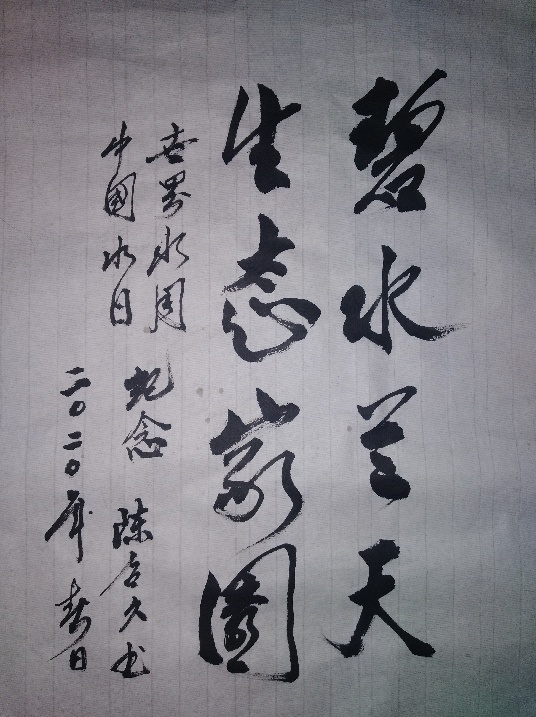 碧水兰天
生态家園
世界水周
中國水日
纪念
陈久书
二〇二〇年春日